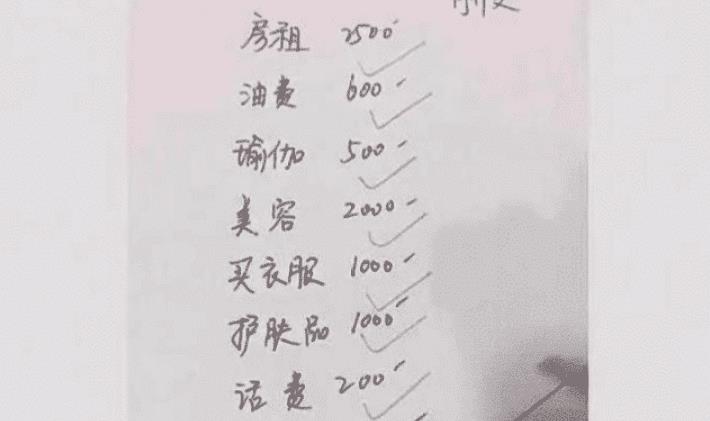 房租 2500-
油费 600-
瑜伽 500-
美容 2000-
买衣服 1000-
护肤品 1000-
话费 200-